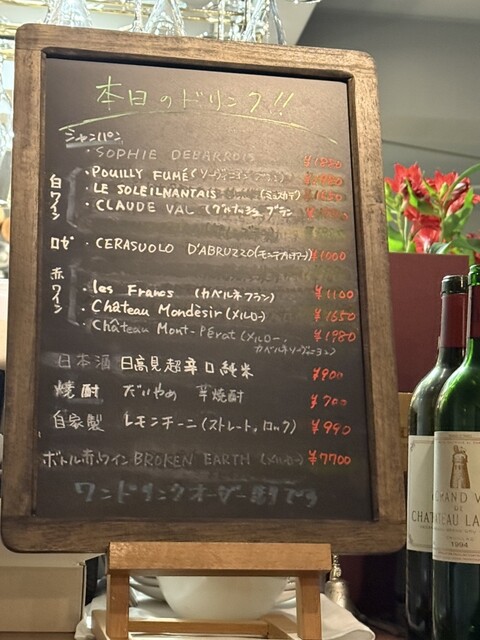 本日のドリンク!!
シャンパン
・SOPHIE DEBARROIS
白ワイン
・POUILLY FUMÉ (ソーヴィニヨンブラン)
・LE SOLEILNANTAIS (ミュスカデ)
・CLAUDE VAL (グルナッシュ ブラン
ロゼ ・CERASUOLO D'ABRUZZO (モンテプルチアーノ) ¥1000
赤ワイン
・les Francs (カベルネフラン) ¥1100
・Château Mondésir (メルロー) ¥1650
・Château Mont-Pérat (メルロー・カベルネソーヴィニヨン) ¥1980
日本酒 日高見超辛口純米 ¥900
焼酎 だいやめ 芋焼酎 ¥700
自家製 レモンチーニ (ストレート,ロック) ¥990
ボトル赤ワイン BROKEN EARTH (メルロー) ¥7700
ワンドリンクオーダー制です
GRAND V
DE
CHATEAU LA
1994
CHAT